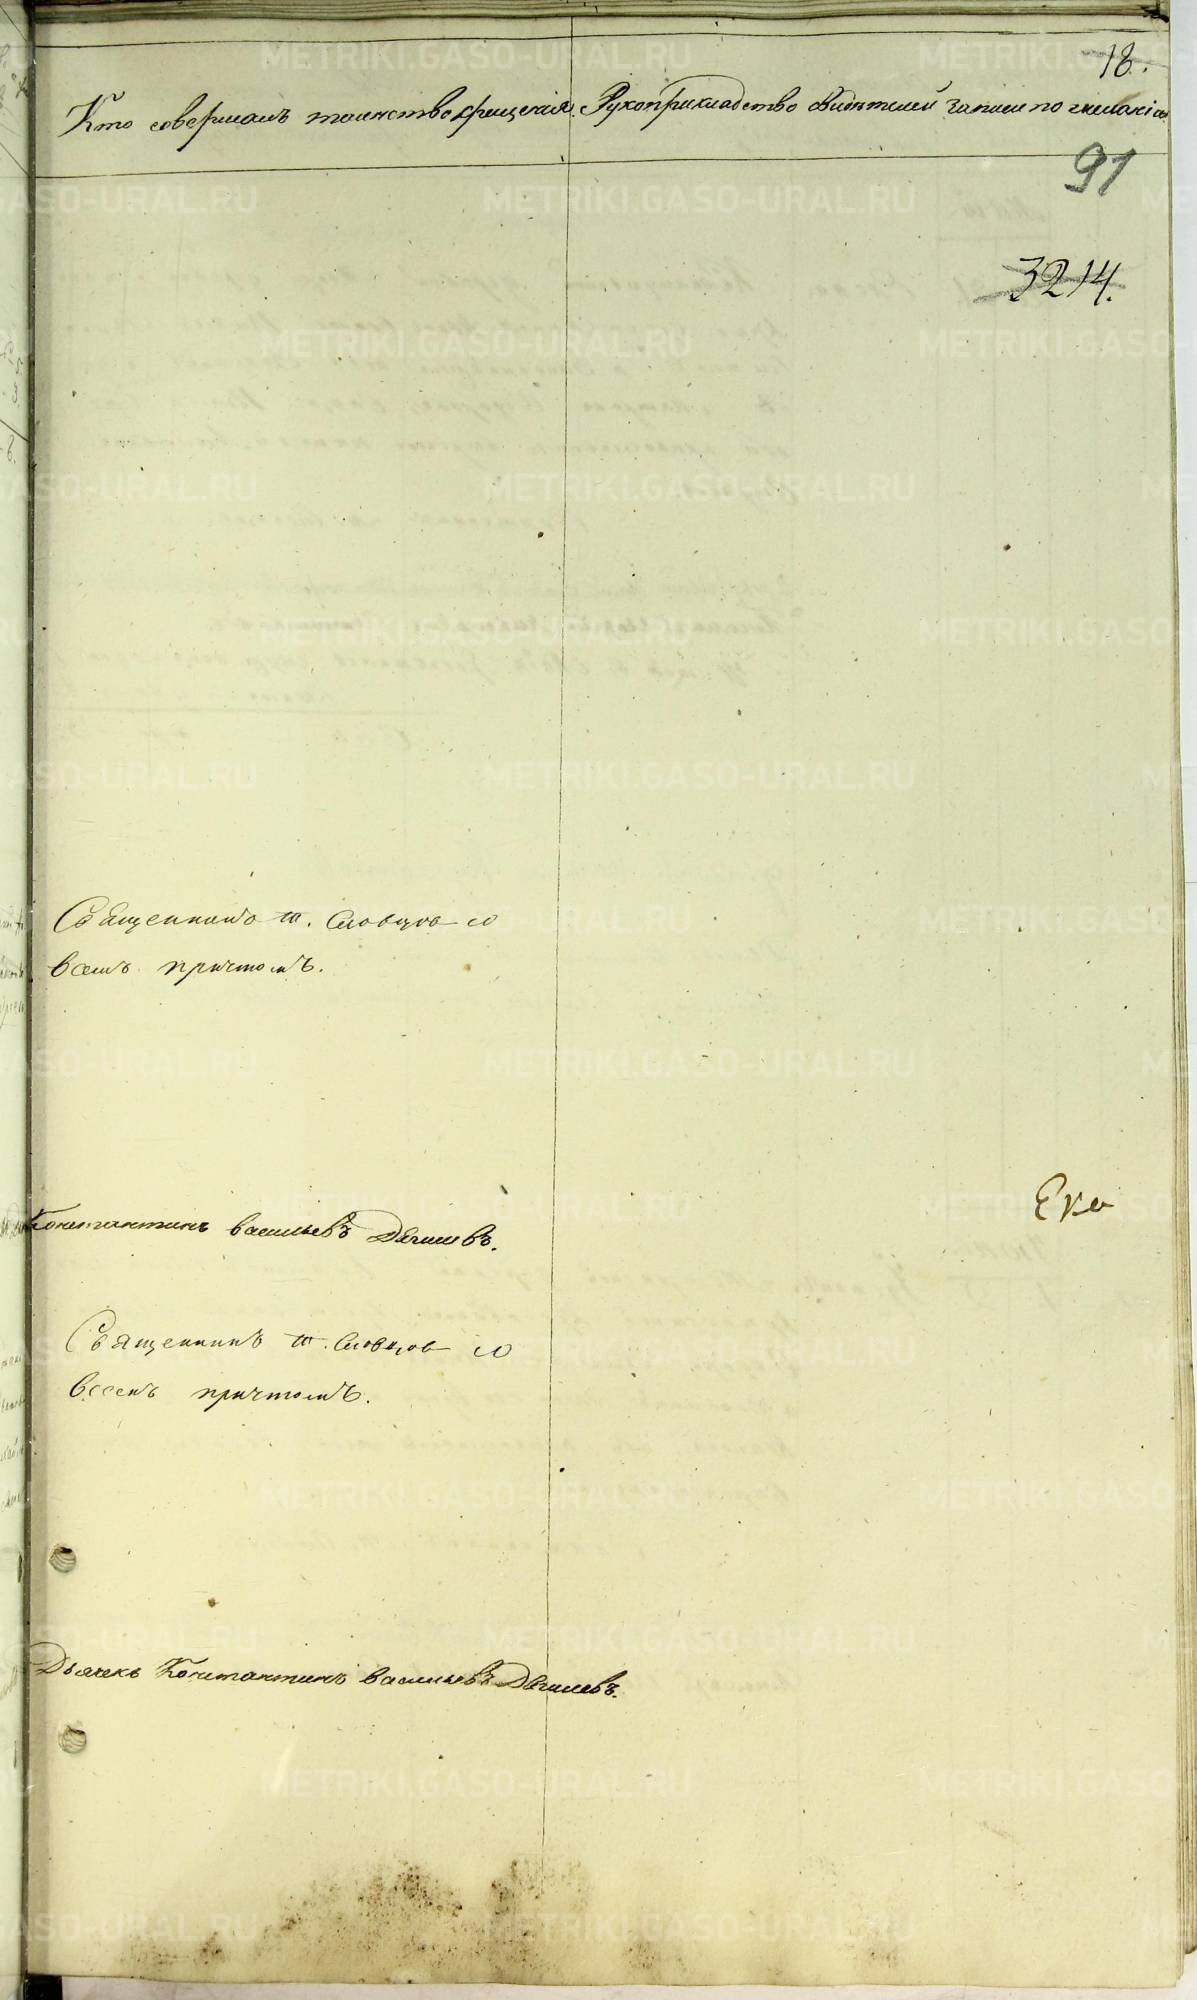 18.
Кто совершалъ таинство крещенія. Рукоприкладство свидѣтелей записи по желанію.
91
3214.
Священникъ т. Словцов со
всемъ причтомъ.
Ека
Константинъ васильевъ
Священникъ т. Словцов со
всемъ причтомъ.
Дьячекъ Константинъ васильевъ
METRIKI.GASO-URAL.RU